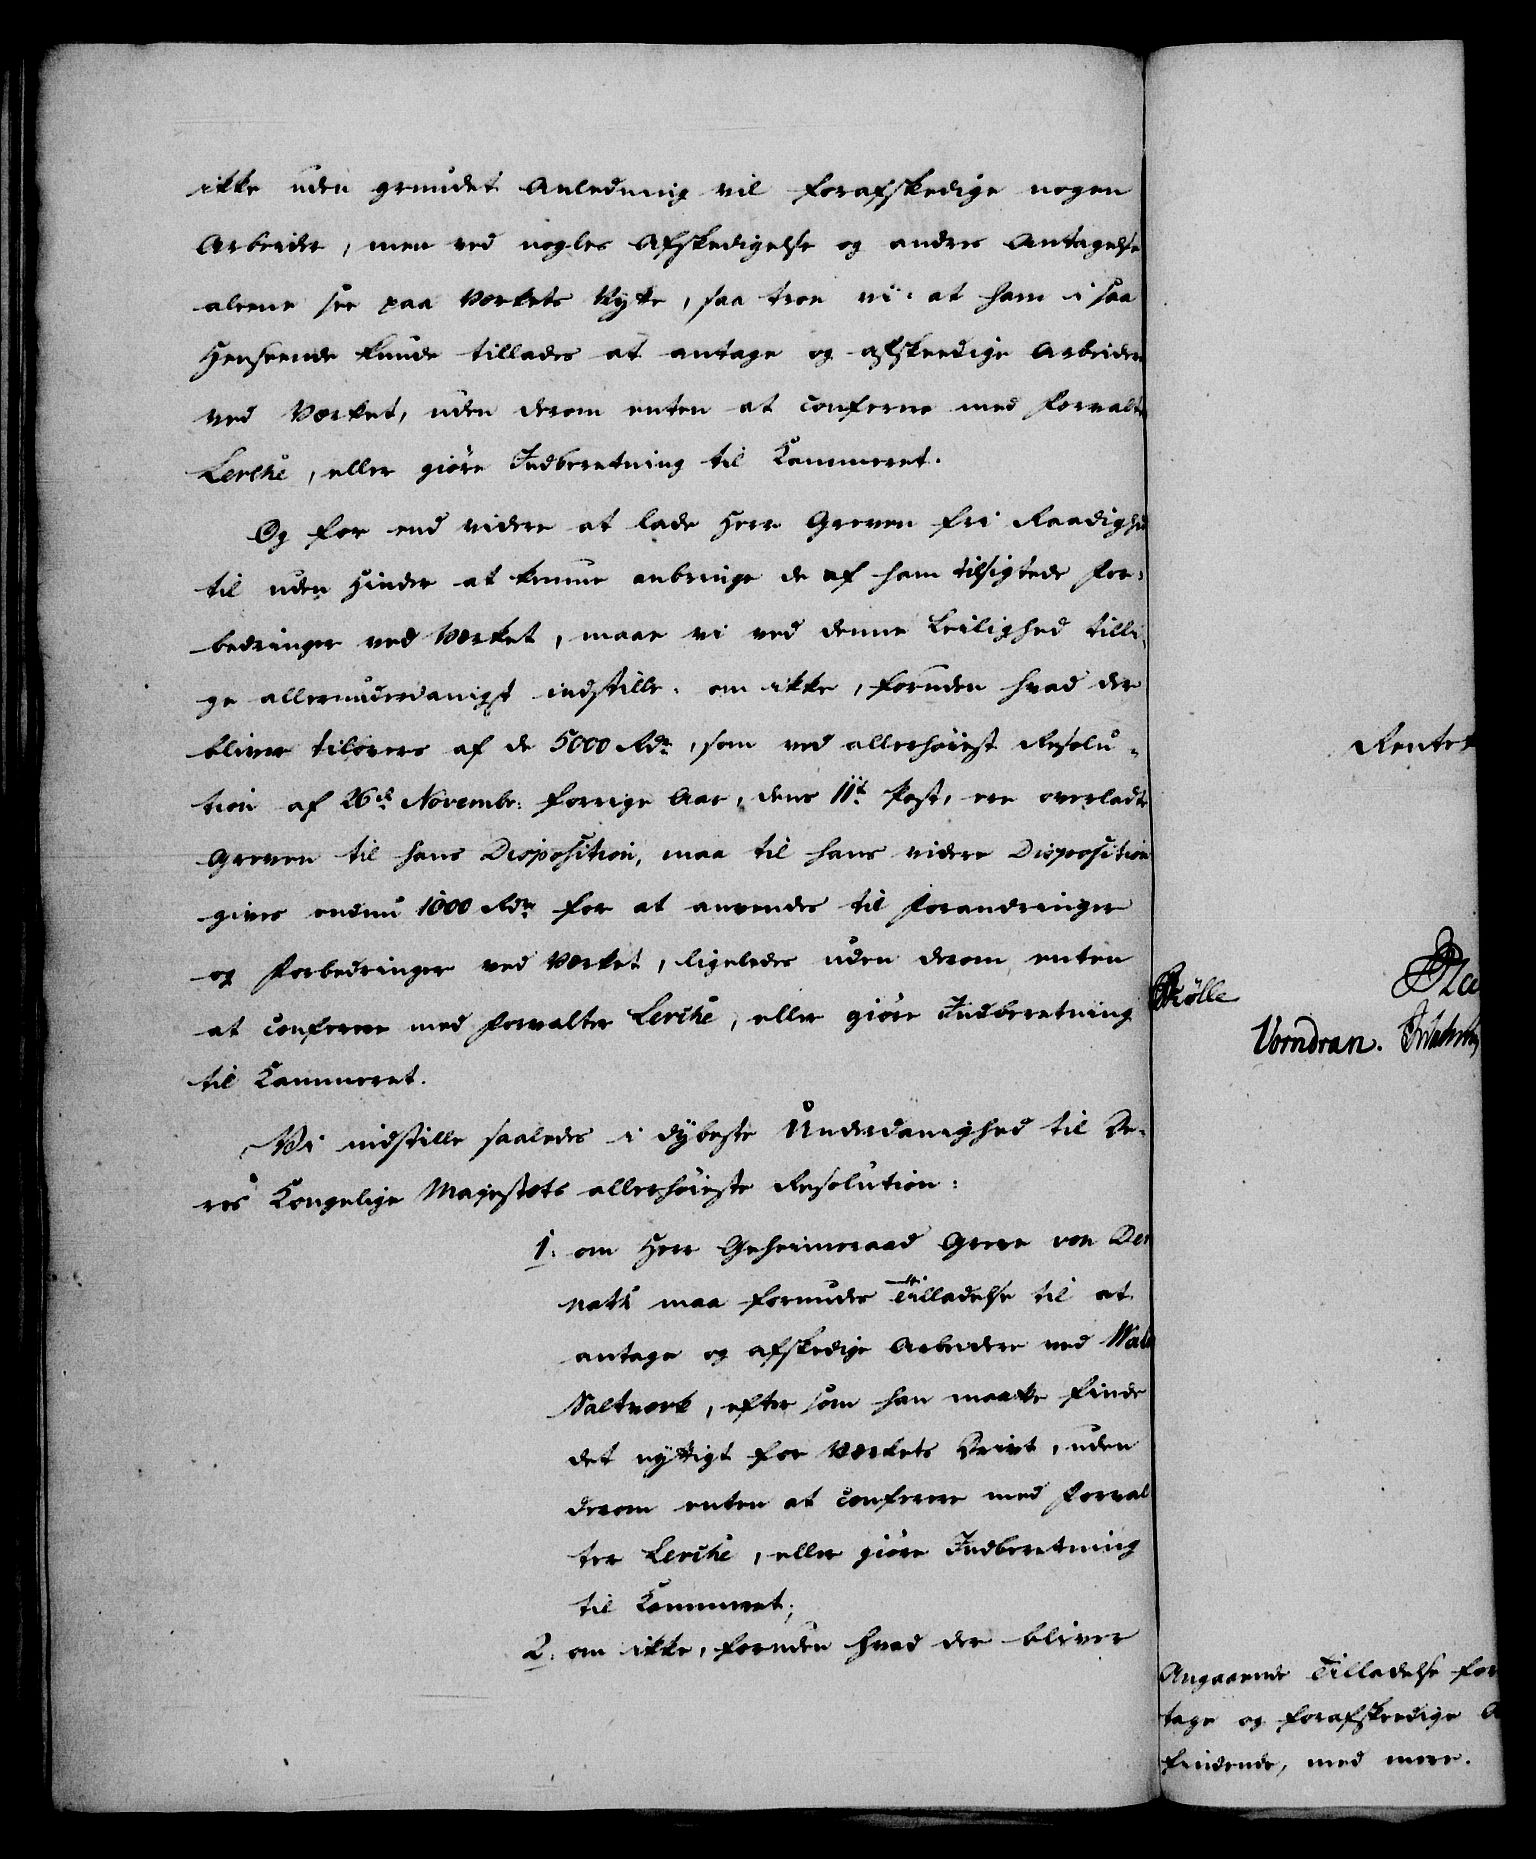 ikke uden grundet Anledning vil forafskedige nogen
Arbeider, men ved nogles Afskedigelse og andres Antagelse
alene see paa Værkets Nytte, saa troe vi: at ham i saa
Henseende kunde tillades at antage og afskeedige Arbeidere
ved Værket, uden derom enten at conferere med Forvalter
Lerche, eller giøre Indberetning til Kammeret.
Og for end videre at lade Herr Greven fri Raadighed
til uden Hinder at kunne anbringe de af ham tilsigtede For-
bedringer ved Værket, maae vi ved denne Leilighed tilli-
ge allerunderdanigst indstille: om ikke, foruden hvad der
bliver tilovers af de 5000 Rdr, som ved allerhøiest Resolu-
tion af 26de Novembr: forrige Aar, dens 11te Post, ere overladte
Greven til hans Disposition, maa til hans videre Disposition
gives endnu 1000 Rdr for at anvendes til Forandringer
og Forbedringer ved Værket, ligeledes uden derom enten
at conferere med Forvalter Lerche, eller giøre Indberetning
til Kammeret.
Vi indstille saaledes i dybeste Underdanighed til De-
res Kongelige Majestæts allerhøieste Resolution:
1. om Herr Geheimeraad Greve von Der
nath maa forundes Tilladelse til at
antage og afskedige Arbeidere ved Walløe
Saltværk, efter som han maatte finde
det nyttigt for Værkets Drivt, uden
derom enten at conferere med Forval
ter Lerche, eller giøre Indberetning
til Kammeret;
2. om ikke, foruden hvad der bliver
Rente
Rølle
Vorndran.
Angaaende Tilladelse for
tage og forafskeedige A
findende, med mere.